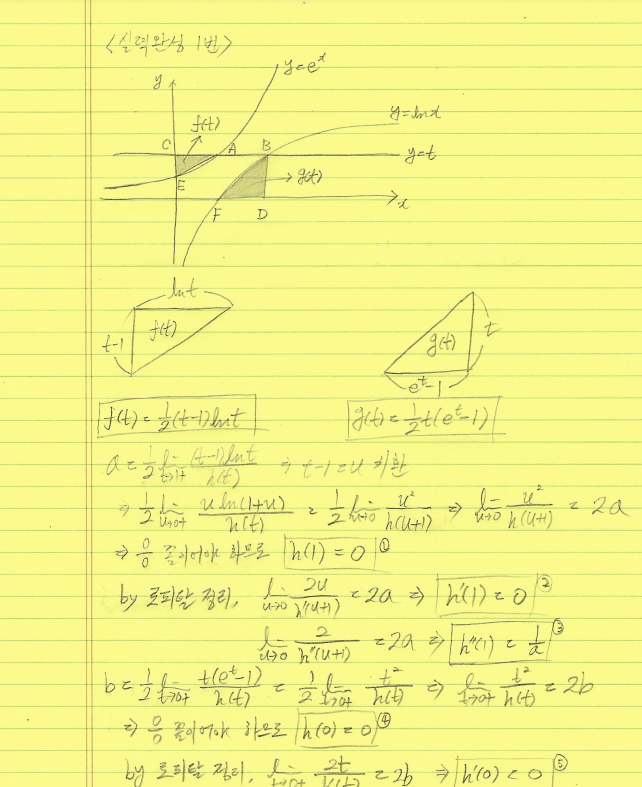 <실력완성 1번>
y=e^x
y
y=lnx
f(t)
C A B y=t
E g(t)
F D x
lnt
t-1 f(t)
g(t) t
e^t-1
f(t)=1/2(t-1)lnt g(t)=1/2t(e^t-1)
a=1/2 lim t→1+ (t-1)lnt/h(t) ⇒ t-1=u 치환
⇒ 1/2 lim u→0+ u ln(1+u)/h(t) = 1/2 lim u→0 u²/h(u+1) ⇒ lim u→0 u²/h(u+1) = 2a
⇒ 0/0 꼴이어야 하므로 h(1)=0 ①
by 로피탈 정리, lim u→0 2u/h'(u+1) = 2a ⇒ h'(1)=0 ②
lim u→0 2/h''(u+1) = 2a ⇒ h''(1)=1/a ③
b=1/2 lim t→0+ t(e^t-1)/h(t) = 1/2 lim t→0+ t²/h(t) ⇒ lim t→0+ t²/h(t) = 2b
⇒ 0/0 꼴이어야 하므로 h(0)=0 ④
by 로피탈 정리, lim t→0+ 2t/h'(t) = 2b ⇒ h'(0)=0 ⑤